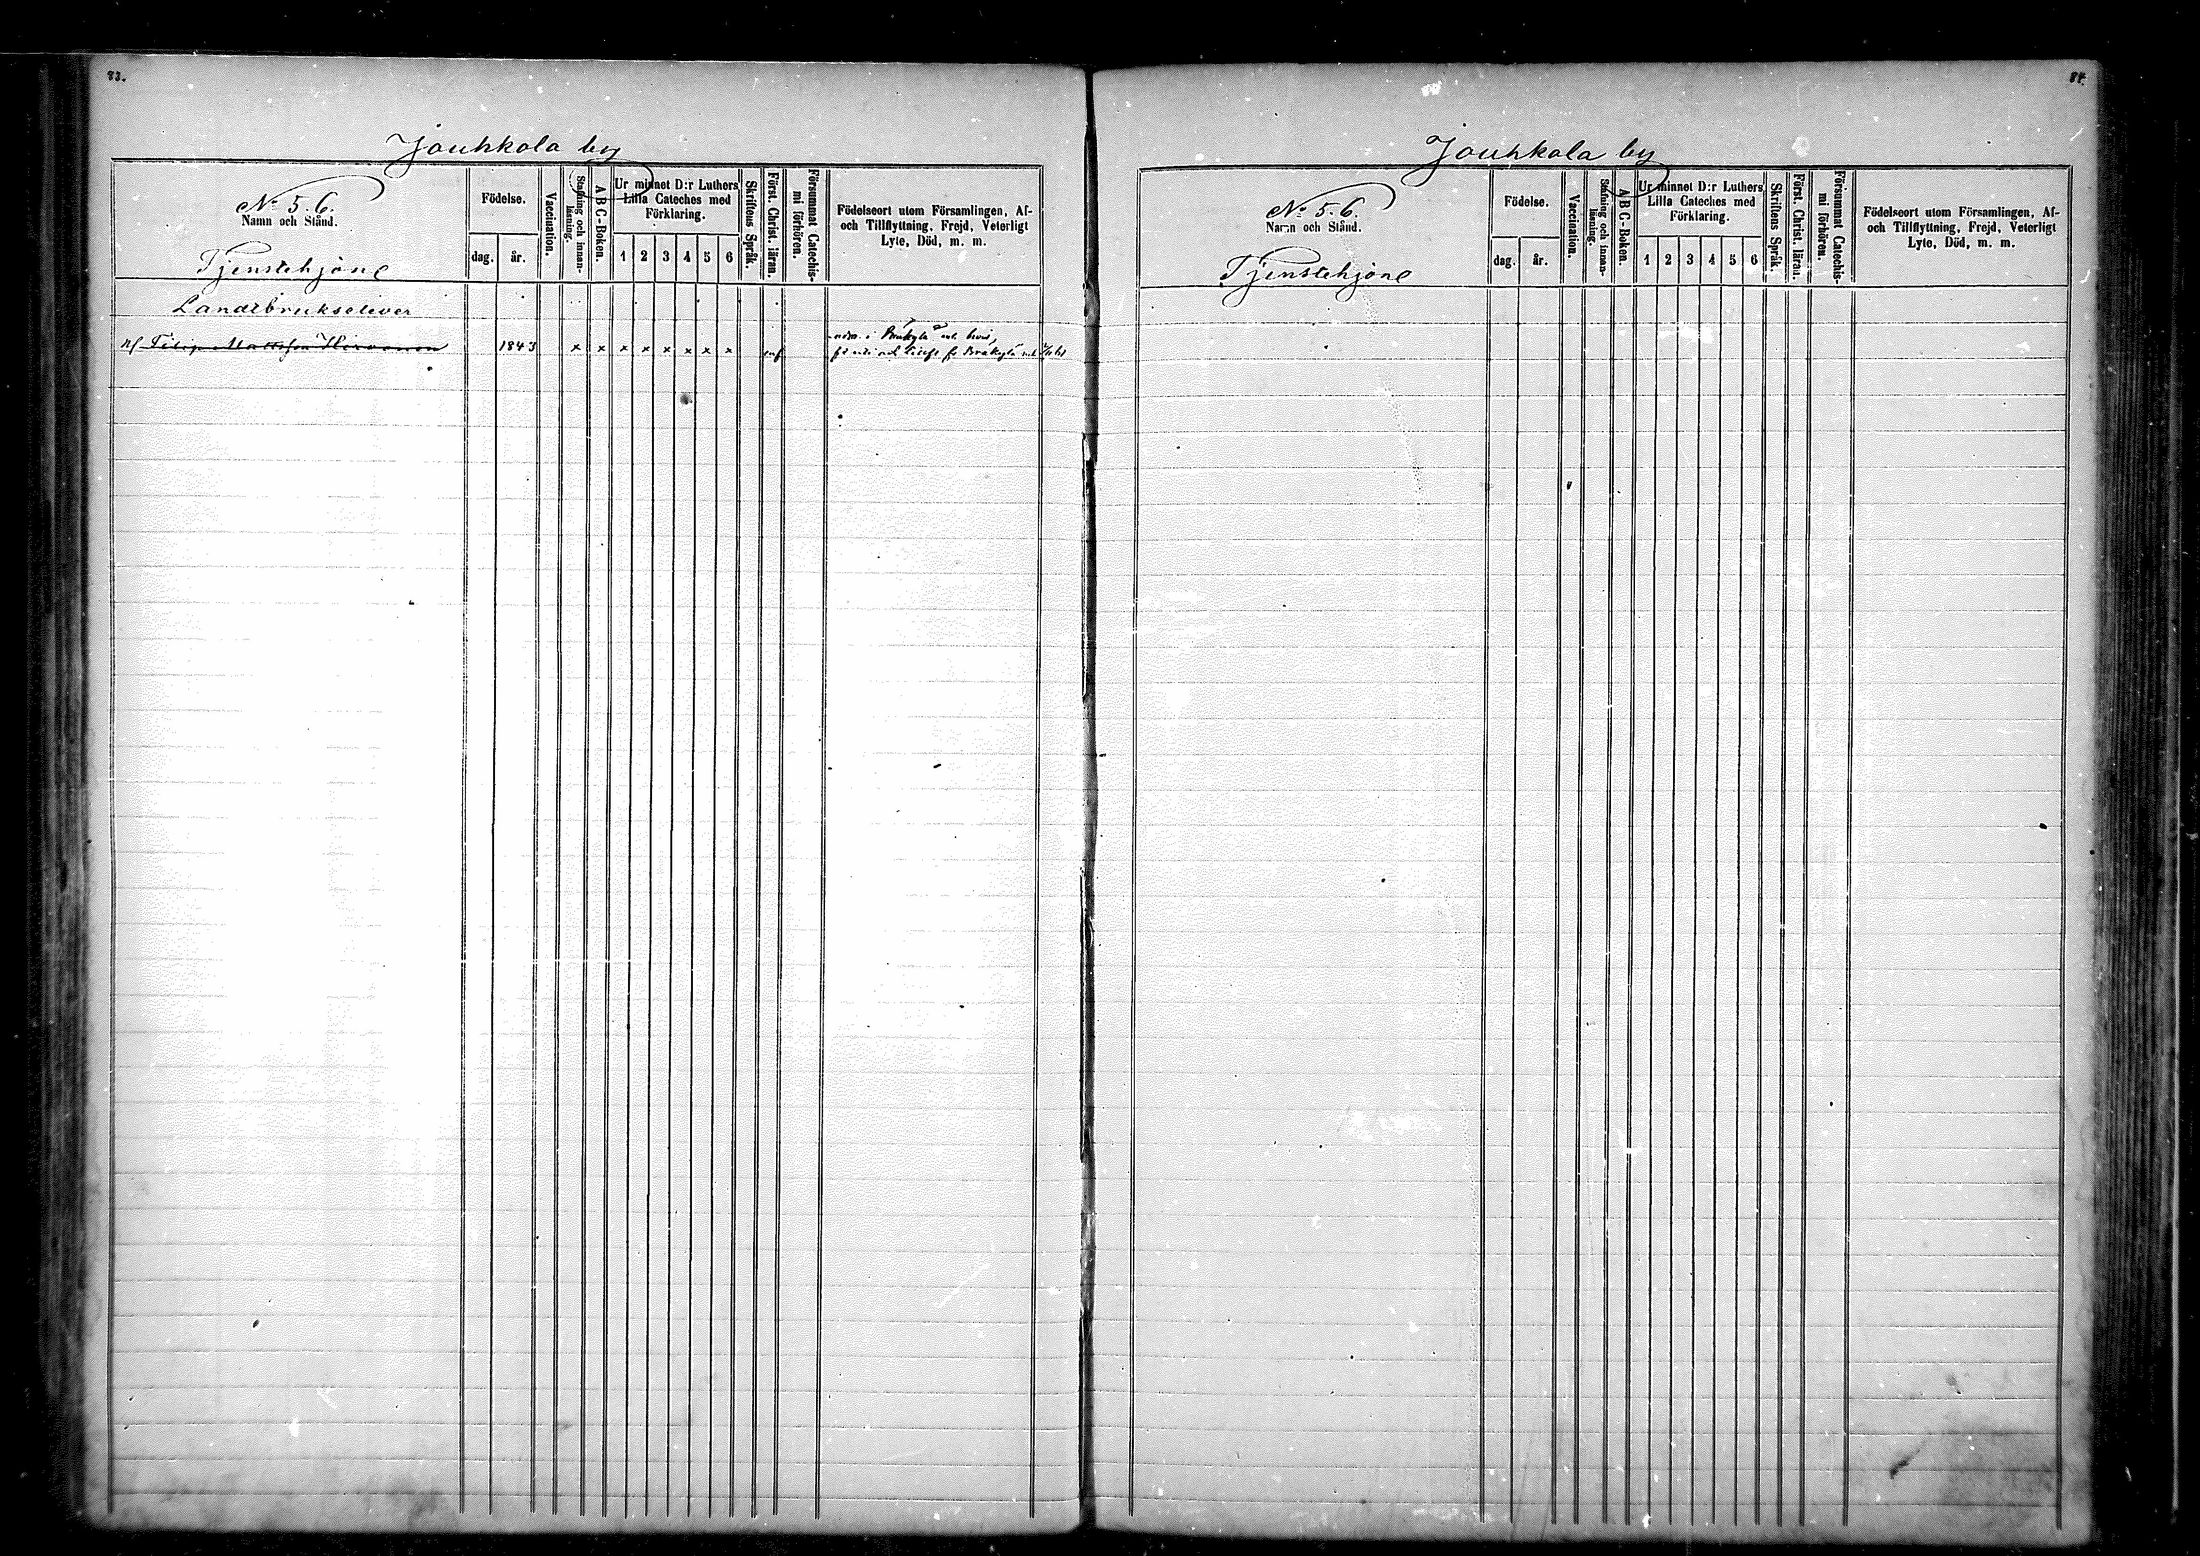 83.
Jouhkola by
No 5. 6.
Namn och Stånd.
Tjenstehjone
Födelse.
dag.
år.
Vaccination.
Stafning och innan-
läsning.
A B C-Boken.
Ur minnet D:r Luthers
Lilla Cateches med
Förklaring.
1 2 3 4 5 6
Skriftens Språk.
Först. Christ. läran.
Försummat Catechis-
mi förhören.
Födelseort utom Församlingen, Af-
och Tillflyttning, Frejd, Veterligt
Lyte, Död, m. m.
Landtbrukselever
Mattsson Hirvonen 1843 x x x x x x x x
84.
Jouhkola by
No 5. 6.
Namn och Stånd.
Tjenstehjone
Födelse.
dag.
år.
Vaccination.
Stafning och innan-
läsning.
A B C-Boken.
Ur minnet D:r Luthers
Lilla Cateches med
Förklaring.
1 2 3 4 5 6
Skriftens Språk.
Först. Christ. läran.
Försummat Catechis-
mi förhören.
Födelseort utom Församlingen, Af-
och Tillflyttning, Frejd, Veterligt
Lyte, Död, m. m.